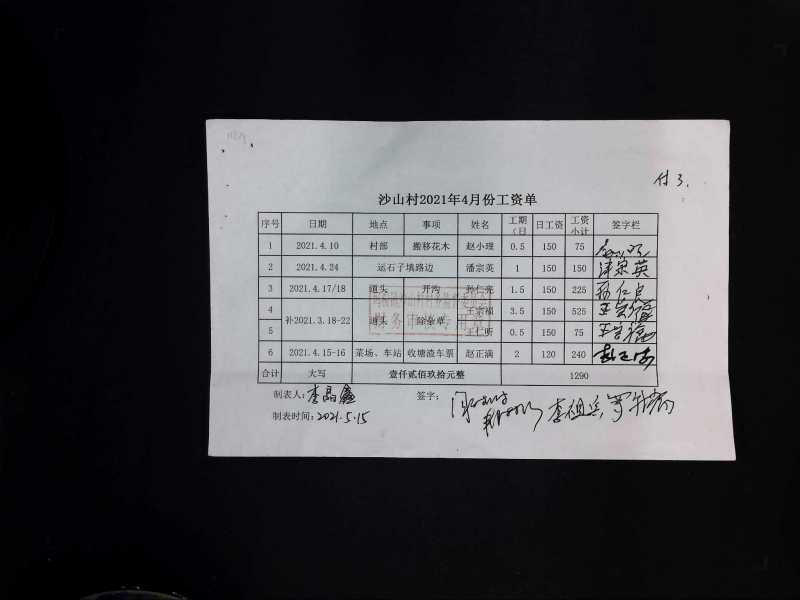 付3.
沙山村2021年4月份工资单
序号 日期 地点 事项 姓名 工期(日 日工资 工资小计 签字栏
1 2021.4.10 村部 搬移花木 赵小理 0.5 150 75
2 2021.4.24 运石子填路边 潘宗英 1 150 150 潘宗英
3 2021.4.17/18 道头 开沟 孙仁亮 1.5 150 225 孙仁良
4 补2021.3.18-22 道头 除杂草 王宗福 3.5 150 525
5 王仁昕 0.5 150 75
6 2021.4.15-16 菜场、车站 收塘渣车票 赵正满 2 120 240 赵正满
合计 大写 壹仟贰佰玖拾元整 1290
制表人:李晶鑫 签字:
制表时间:2021.5.15
财务审核专用章